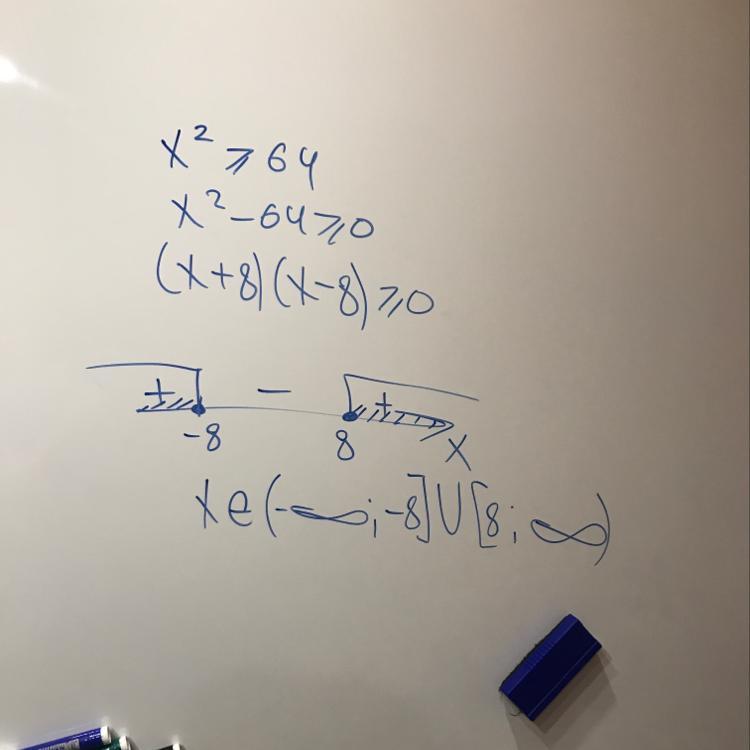 x² ⩾ 64
x² - 64 ⩾ 0
(x+8)(x-8) ⩾ 0
+ - +
-8 8 x
x e (-∞; -8] U [8; ∞)